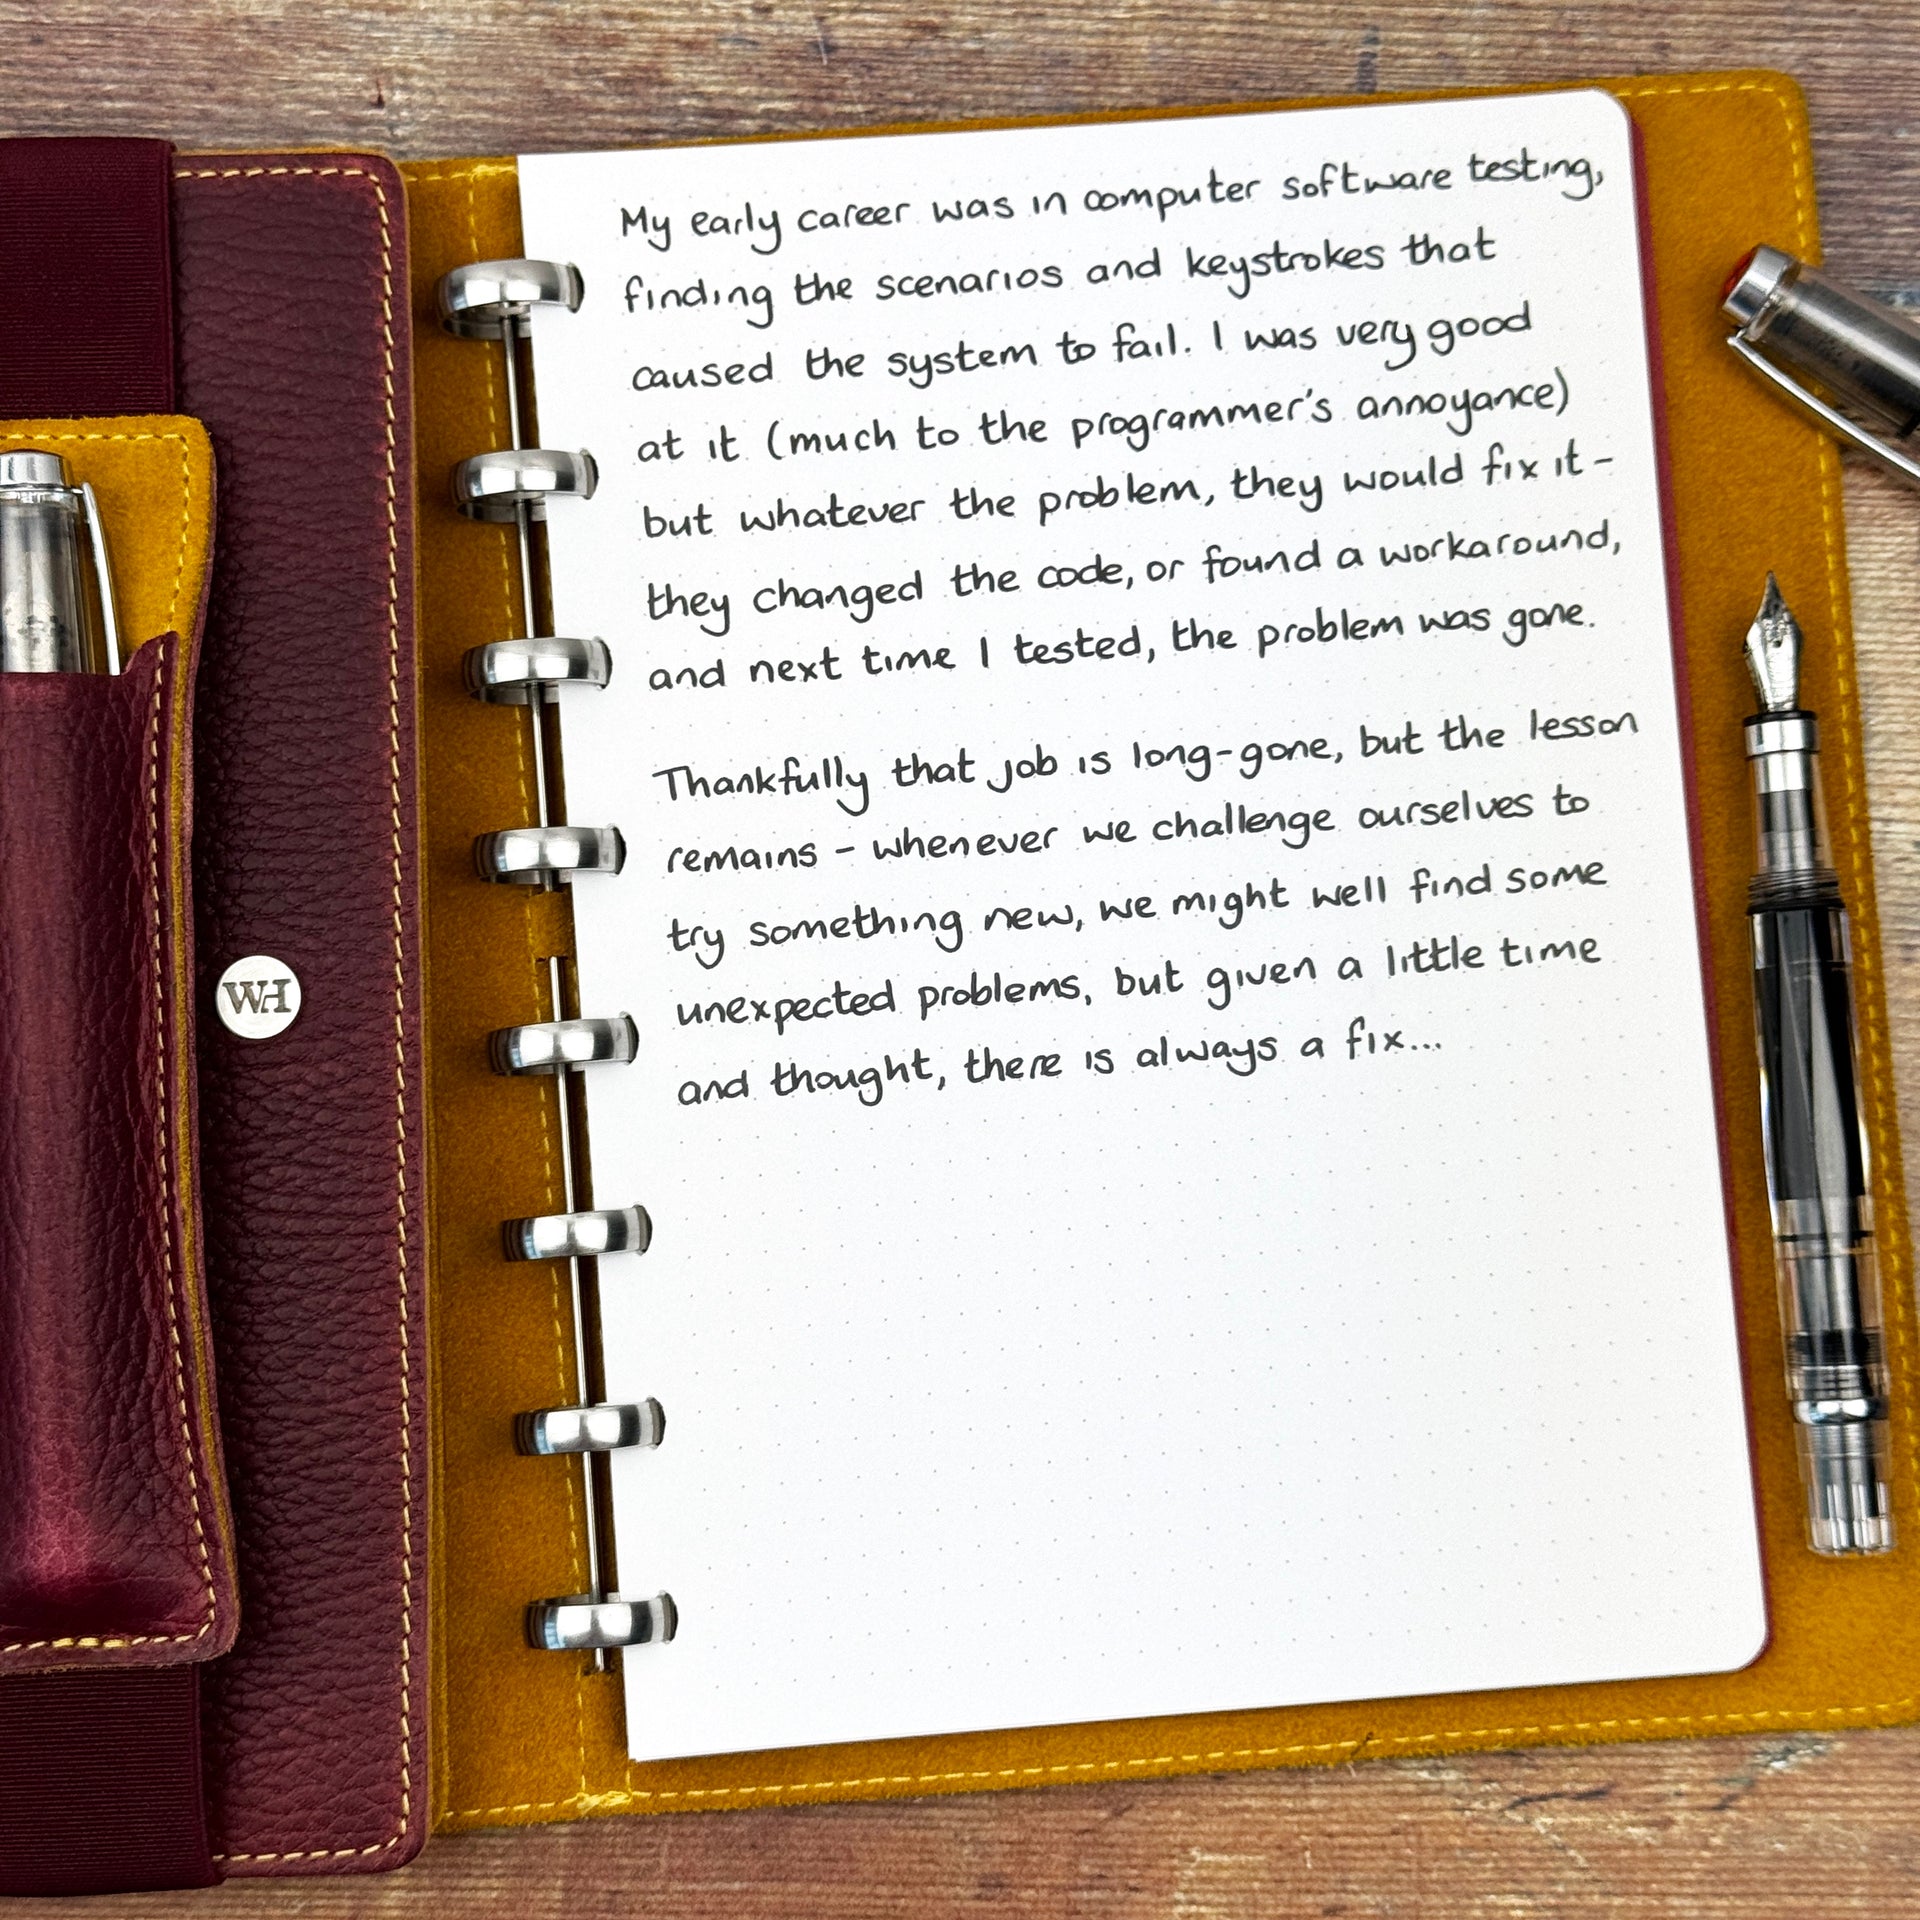 My early career was in computer software testing,
finding the scenarios and keystrokes that
caused the system to fail. I was very good
at it (much to the programmer's annoyance)
but whatever the problem, they would fix it -
they changed the code, or found a workaround,
and next time I tested, the problem was gone.
Thankfully that job is long-gone, but the lesson
remains - whenever we challenge ourselves to
try something new, we might well find some
unexpected problems, but given a little time
and thought, there is always a fix...
WH